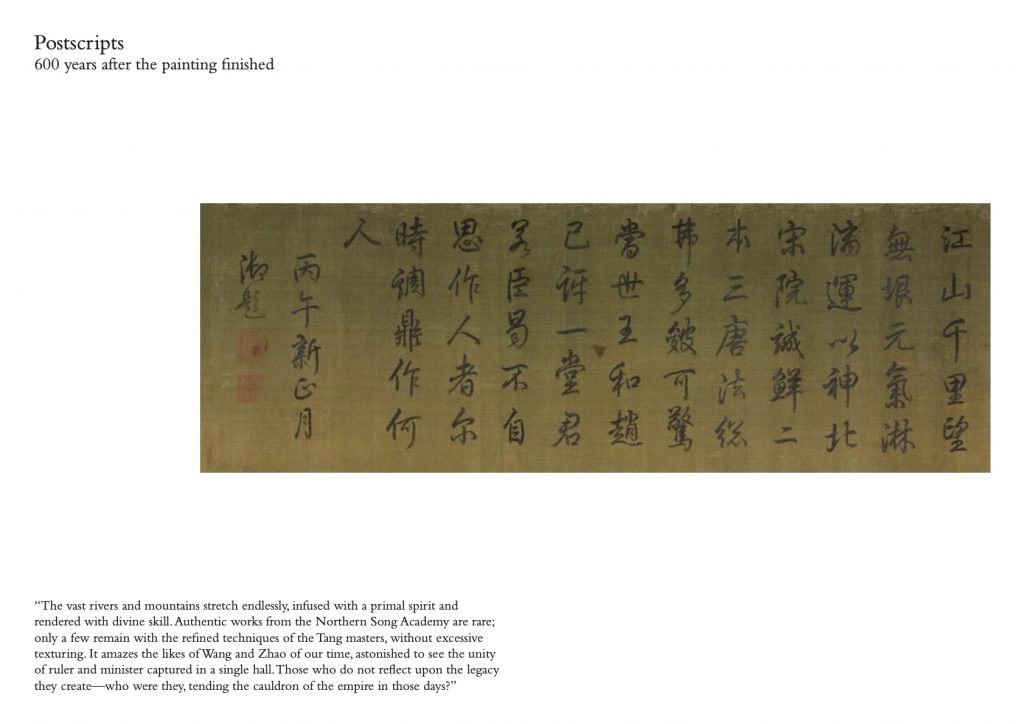 Postscripts
600 years after the painting finished
江山千里望
無垠元氣淋
漓運以神北
宋院誠鮮二
本三唐法總
弗多皴可驚
當世王和趙
已訝一堂君
若臣曷不自
思作人者尔
時調鼎作何
人
丙午新正月
御題
“The vast rivers and mountains stretch endlessly, infused with a primal spirit and
rendered with divine skill. Authentic works from the Northern Song Academy are rare;
only a few remain with the refined techniques of the Tang masters, without excessive
texturing. It amazes the likes of Wang and Zhao of our time, astonished to see the unity
of ruler and minister captured in a single hall. Those who do not reflect upon the legacy
they create—who were they, tending the cauldron of the empire in those days?”